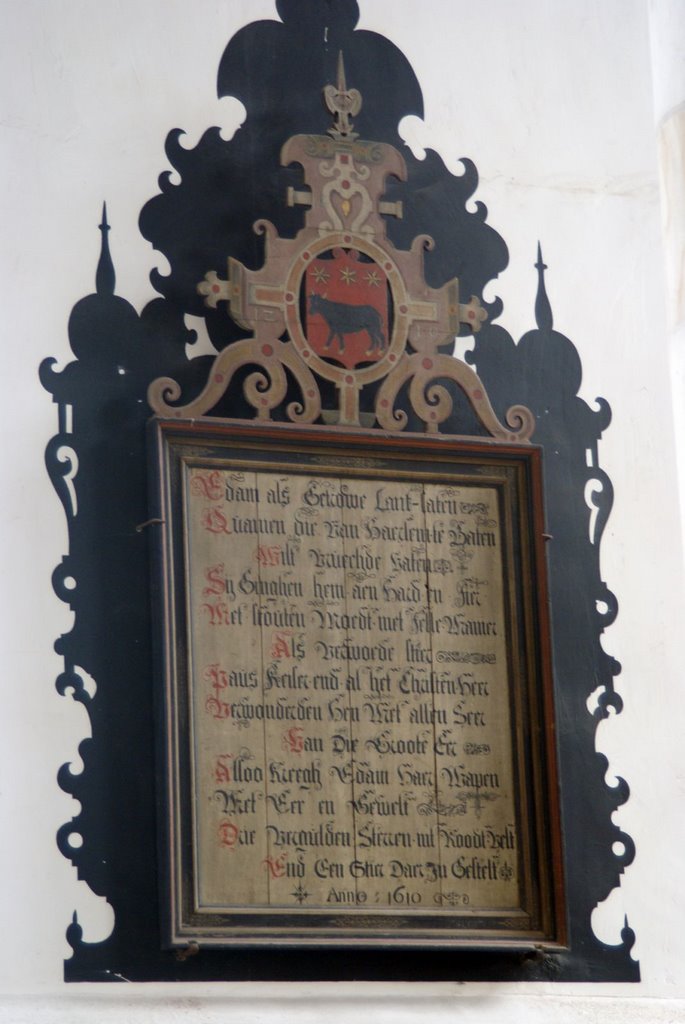 Edam als Getrowe Lant-saten
Quamen die van Haerlem te Baten
Wilt vruechde vaten
Sy Ginghen hem aen Hard en Fier
Met stouten Moedt met felle Manier
Als verwoorde stier
Paus Keiser end al het Christen Heer
Verwonderden Hen Met allen Seer
Van Die Groote Eer
Alsoo Kreegh Edam Haer Wapen
Met Eer en Gewelt
Drie Vergulden Sterren int Roodt Velt
End Een Stier Daer In Gestelt
Anno : 1610